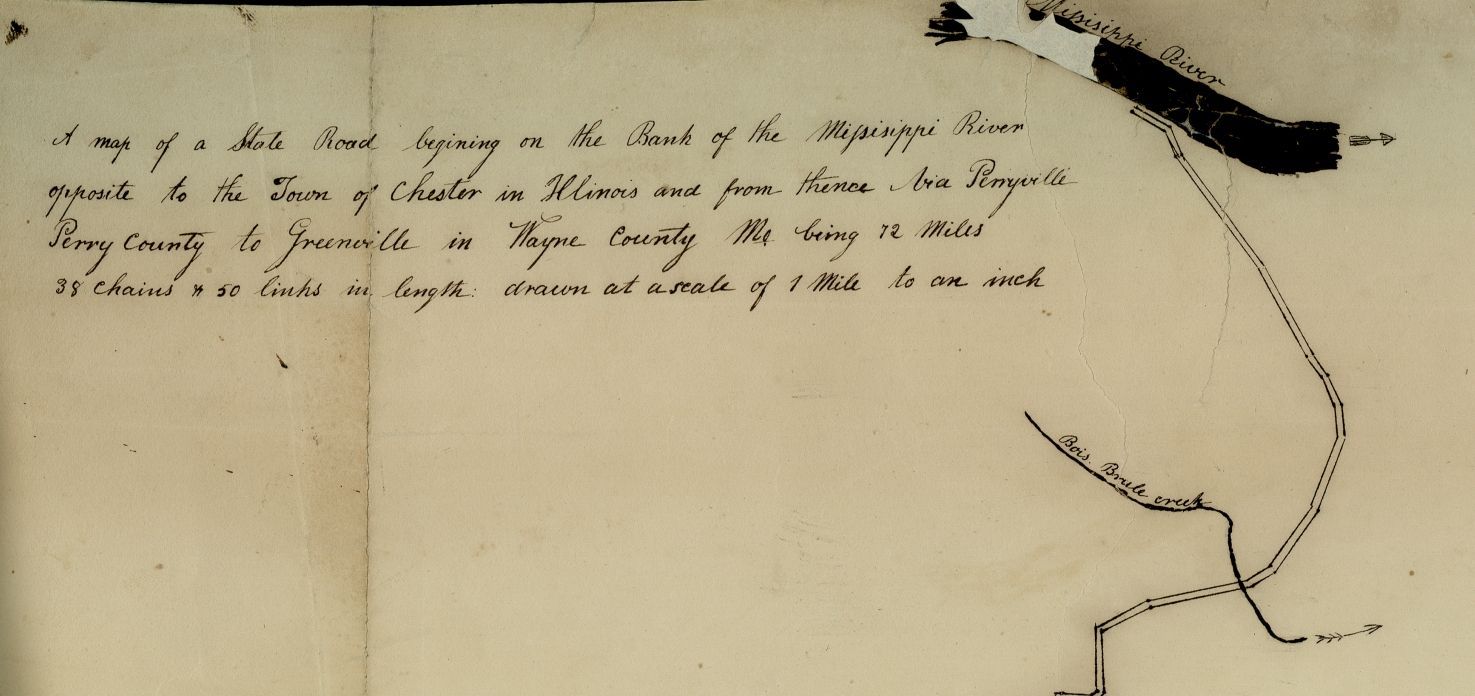 Missisippi River
A map of a State Road begining on the Bank of the Missisippi River
opposite to the Town of Chester in Illinois and from thence Via Perryville
Perry County to Greenville in Wayne County Mo being 72 Miles
38 Chains & 50 links in length: drawn at a scale of 1 Mile to an inch
Bois. Brule creek